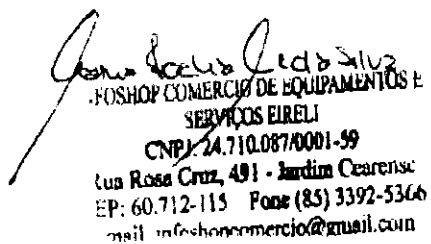 .FOSHOP COMERCIO DE EQUIPAMENTOS E
SERVIÇOS EIRELI
CNPJ. 24.710.087/0001-59
Rua Rosa Cruz, 491 - Jardim Cearense
EP: 60.712-115 Fone (85) 3392-5366
mail infoshopcomercio@gmail.com